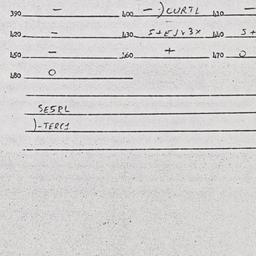 390 — 400 —) CURTL 410 —
420 — 430 5+EJV3X 440 5+
450 — 460 + 470 0
480 0
SE5RL
)-TERCY